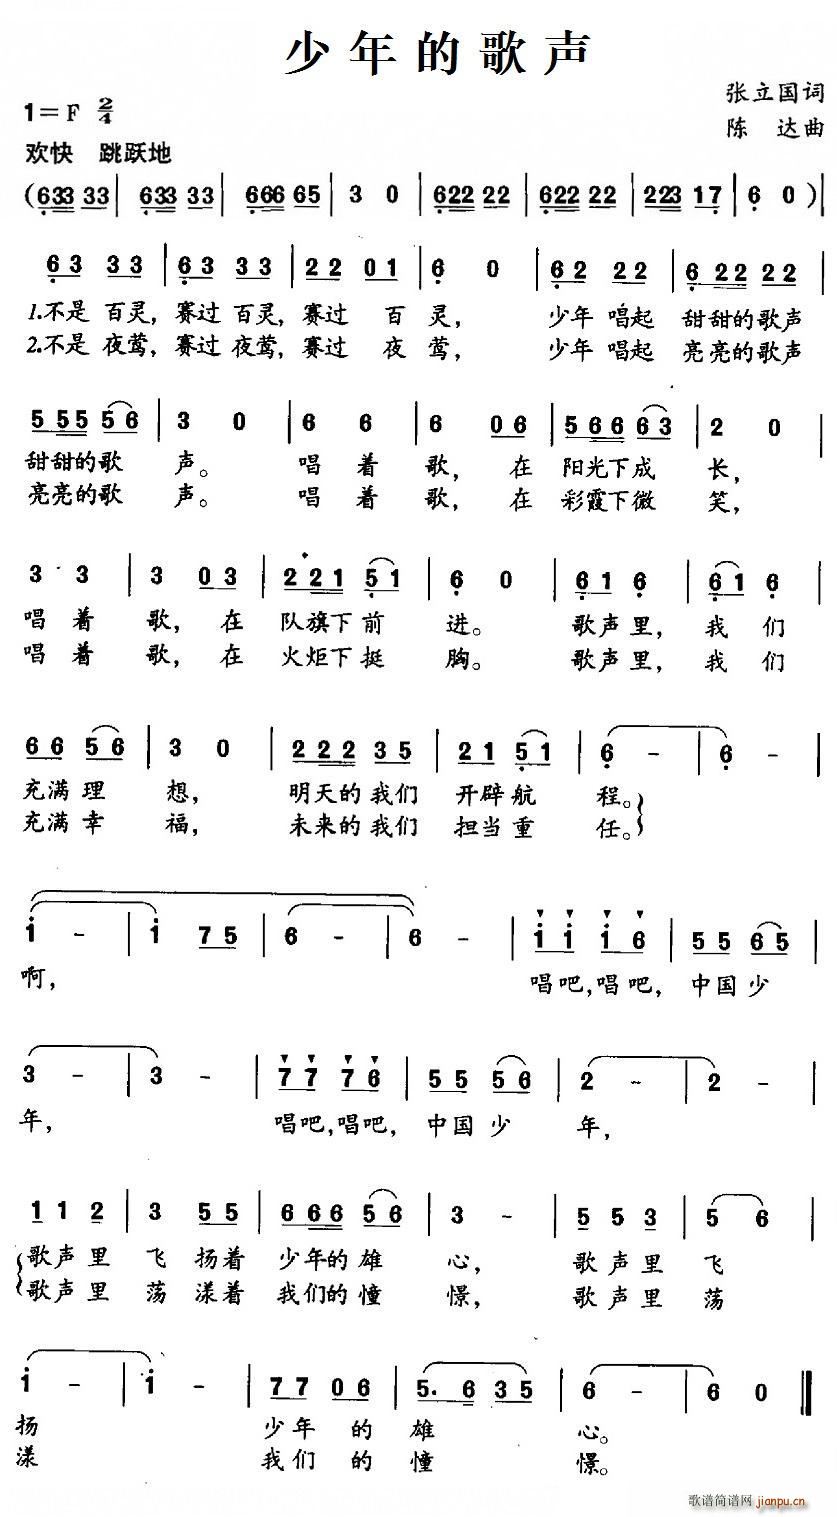 少年的歌声
张立国词
1=F 2/4
陈 达曲
欢快 跳跃地
(633 33 | 633 33 | 666 65 | 3 0 | 622 22 | 622 22 | 223 17 | 6 0 )|
63 33 | 63 33 | 22 01 | 6 0 | 62 22 | 622 22 |
1.不是 百灵, 赛过 百灵, 赛过 百 灵, 少年 唱起 甜甜的歌声
2.不是 夜莺, 赛过 夜莺, 赛过 夜 莺, 少年 唱起 亮亮的歌声
555 56 | 3 0 | 6 6 | 6 06 | 566 63 | 2 0 |
甜甜的歌 声。 唱 着 歌, 在 阳光下成 长,
亮亮的歌 声。 唱 着 歌, 在 彩霞下微 笑,
3 3 | 3 03 | 221 51 | 6 0 | 61 6 | 61 6 |
唱 着 歌, 在 队旗下前 进。 歌声里, 我 们
唱 着 歌, 在 火炬下挺 胸。 歌声里, 我 们
66 56 | 3 0 | 222 35 | 21 51 | 6 - | 6 - |
充满 理 想, 明天的我们 开辟航 程。
充满 幸 福, 未来的我们 担当重 任。
i - | i 75 | 6 - | 6 - | ii i6 | 55 65 |
啊, 唱吧,唱吧, 中国少
3 - | 3 - | 77 76 | 55 56 | 2 - | 2 - |
年, 唱吧,唱吧, 中国少 年,
1 1 2 | 3 55 | 666 56 | 3 - | 5 5 3 | 5 6 |
歌声里 飞 扬着 少年的雄 心, 歌声里 飞
歌声里 荡 漾着 我们的憧 憬, 歌声里 荡
i - | i - | 77 06 | 5. 6 35 | 6 - | 6 0 ‖
扬 少年 的 雄 心。
漾 我们 的 憧 憬。
歌谱简谱网 jianpu.cn